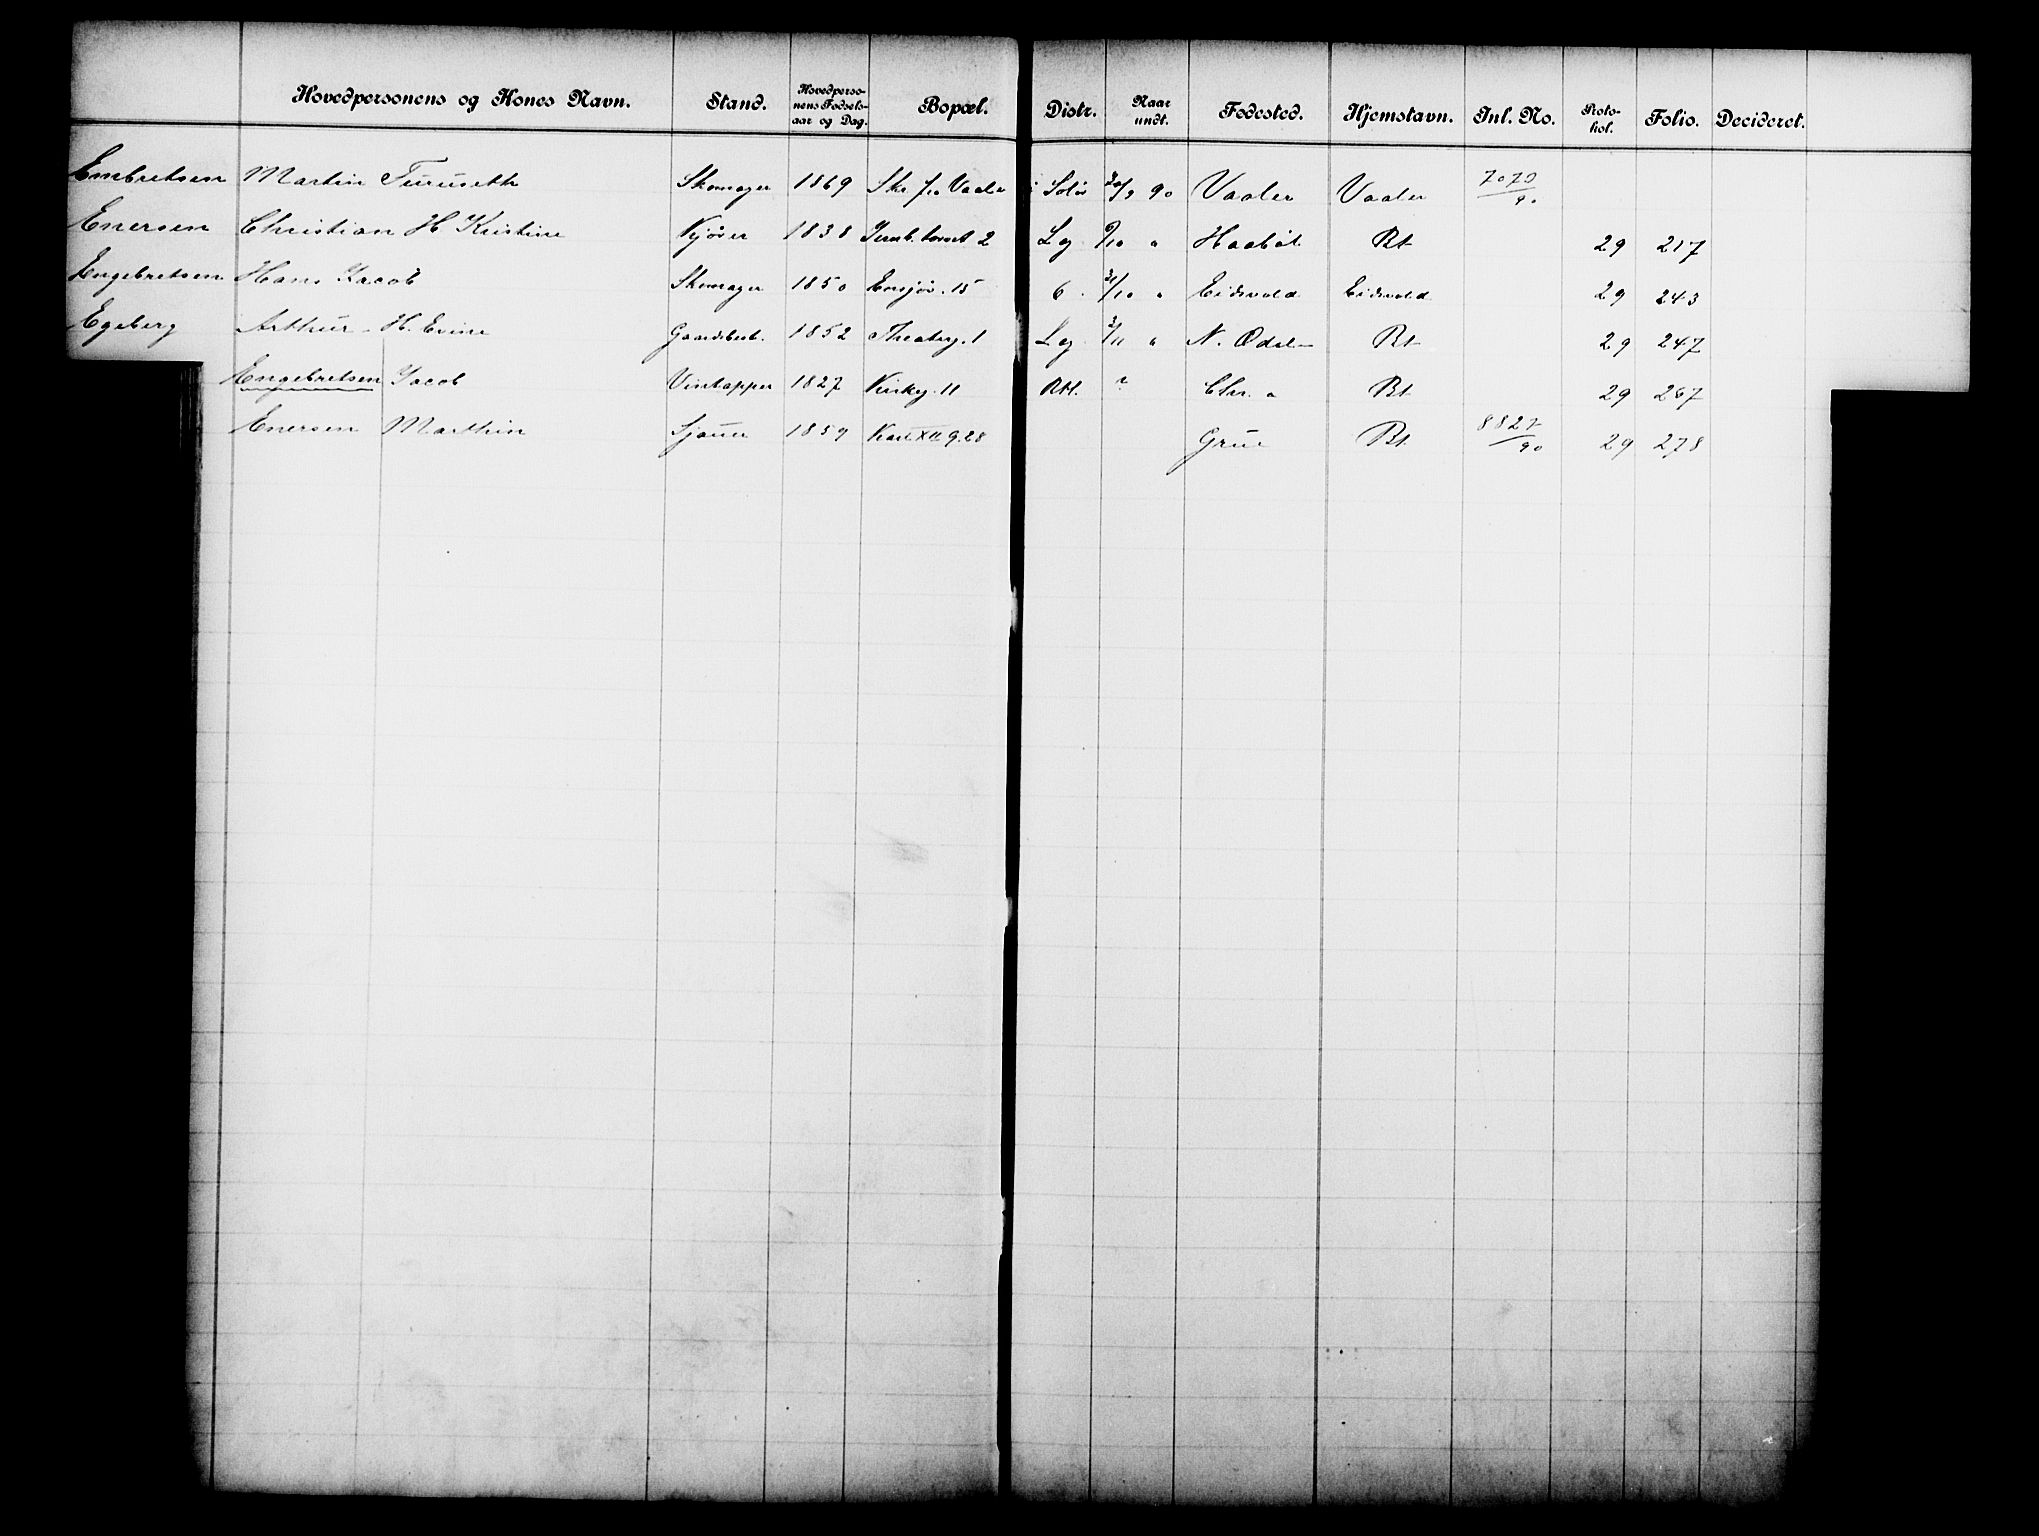 Hovedpersonens og Kones Navn. Stand. Hovedpersonens Fødselsaar og Dag. Bopæl. Distr. Naar undt. Fødested. Hjemstavn. Inl. No. Protokol. Folio. Decideret.
Embretsen Martin Furuseth Skomager 1869 Skr fra Vaaler i Solør 30/9 90 Vaaler Vaaler 7070/90
Enersen Christian H Kristine Kjører 1838 Jernb. torvet 2 Lg /10 " Haabøl Bt 29 217
Engebretsen Hans Jacob Skomager 1850 Ensjøv. 15 6 31/10 " Eidsvold Eidsvold 29 243
Egeberg Arthur H. Evine Gaardsbest. 1852 Theaterg. 1 Lg 3/11 " N. Odal Bt 29 247
Engebretsen Jacob Vintapper 1827 Kirkeg. 11 Rtt. ? Chr. a Bt 29 267
Enersen Marthin Sjauer 1859 Karl XII g. 28 Grue Bt 8827/90 29 278